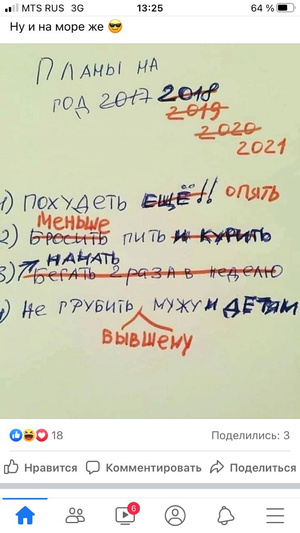 MTS RUS 3G 13:25 64 %
Ну и на море же 😎
Планы на
год 2017 2018
2019
2020
2021
1) Похудеть ещё!! опять
Меньше
2) Бросить пить и курить
Начать
3) Бегать 2 раза в неделю
4) Не грубить мужу и детям
бывшему
18 Поделились: 3
Нравится Комментировать Поделиться
6